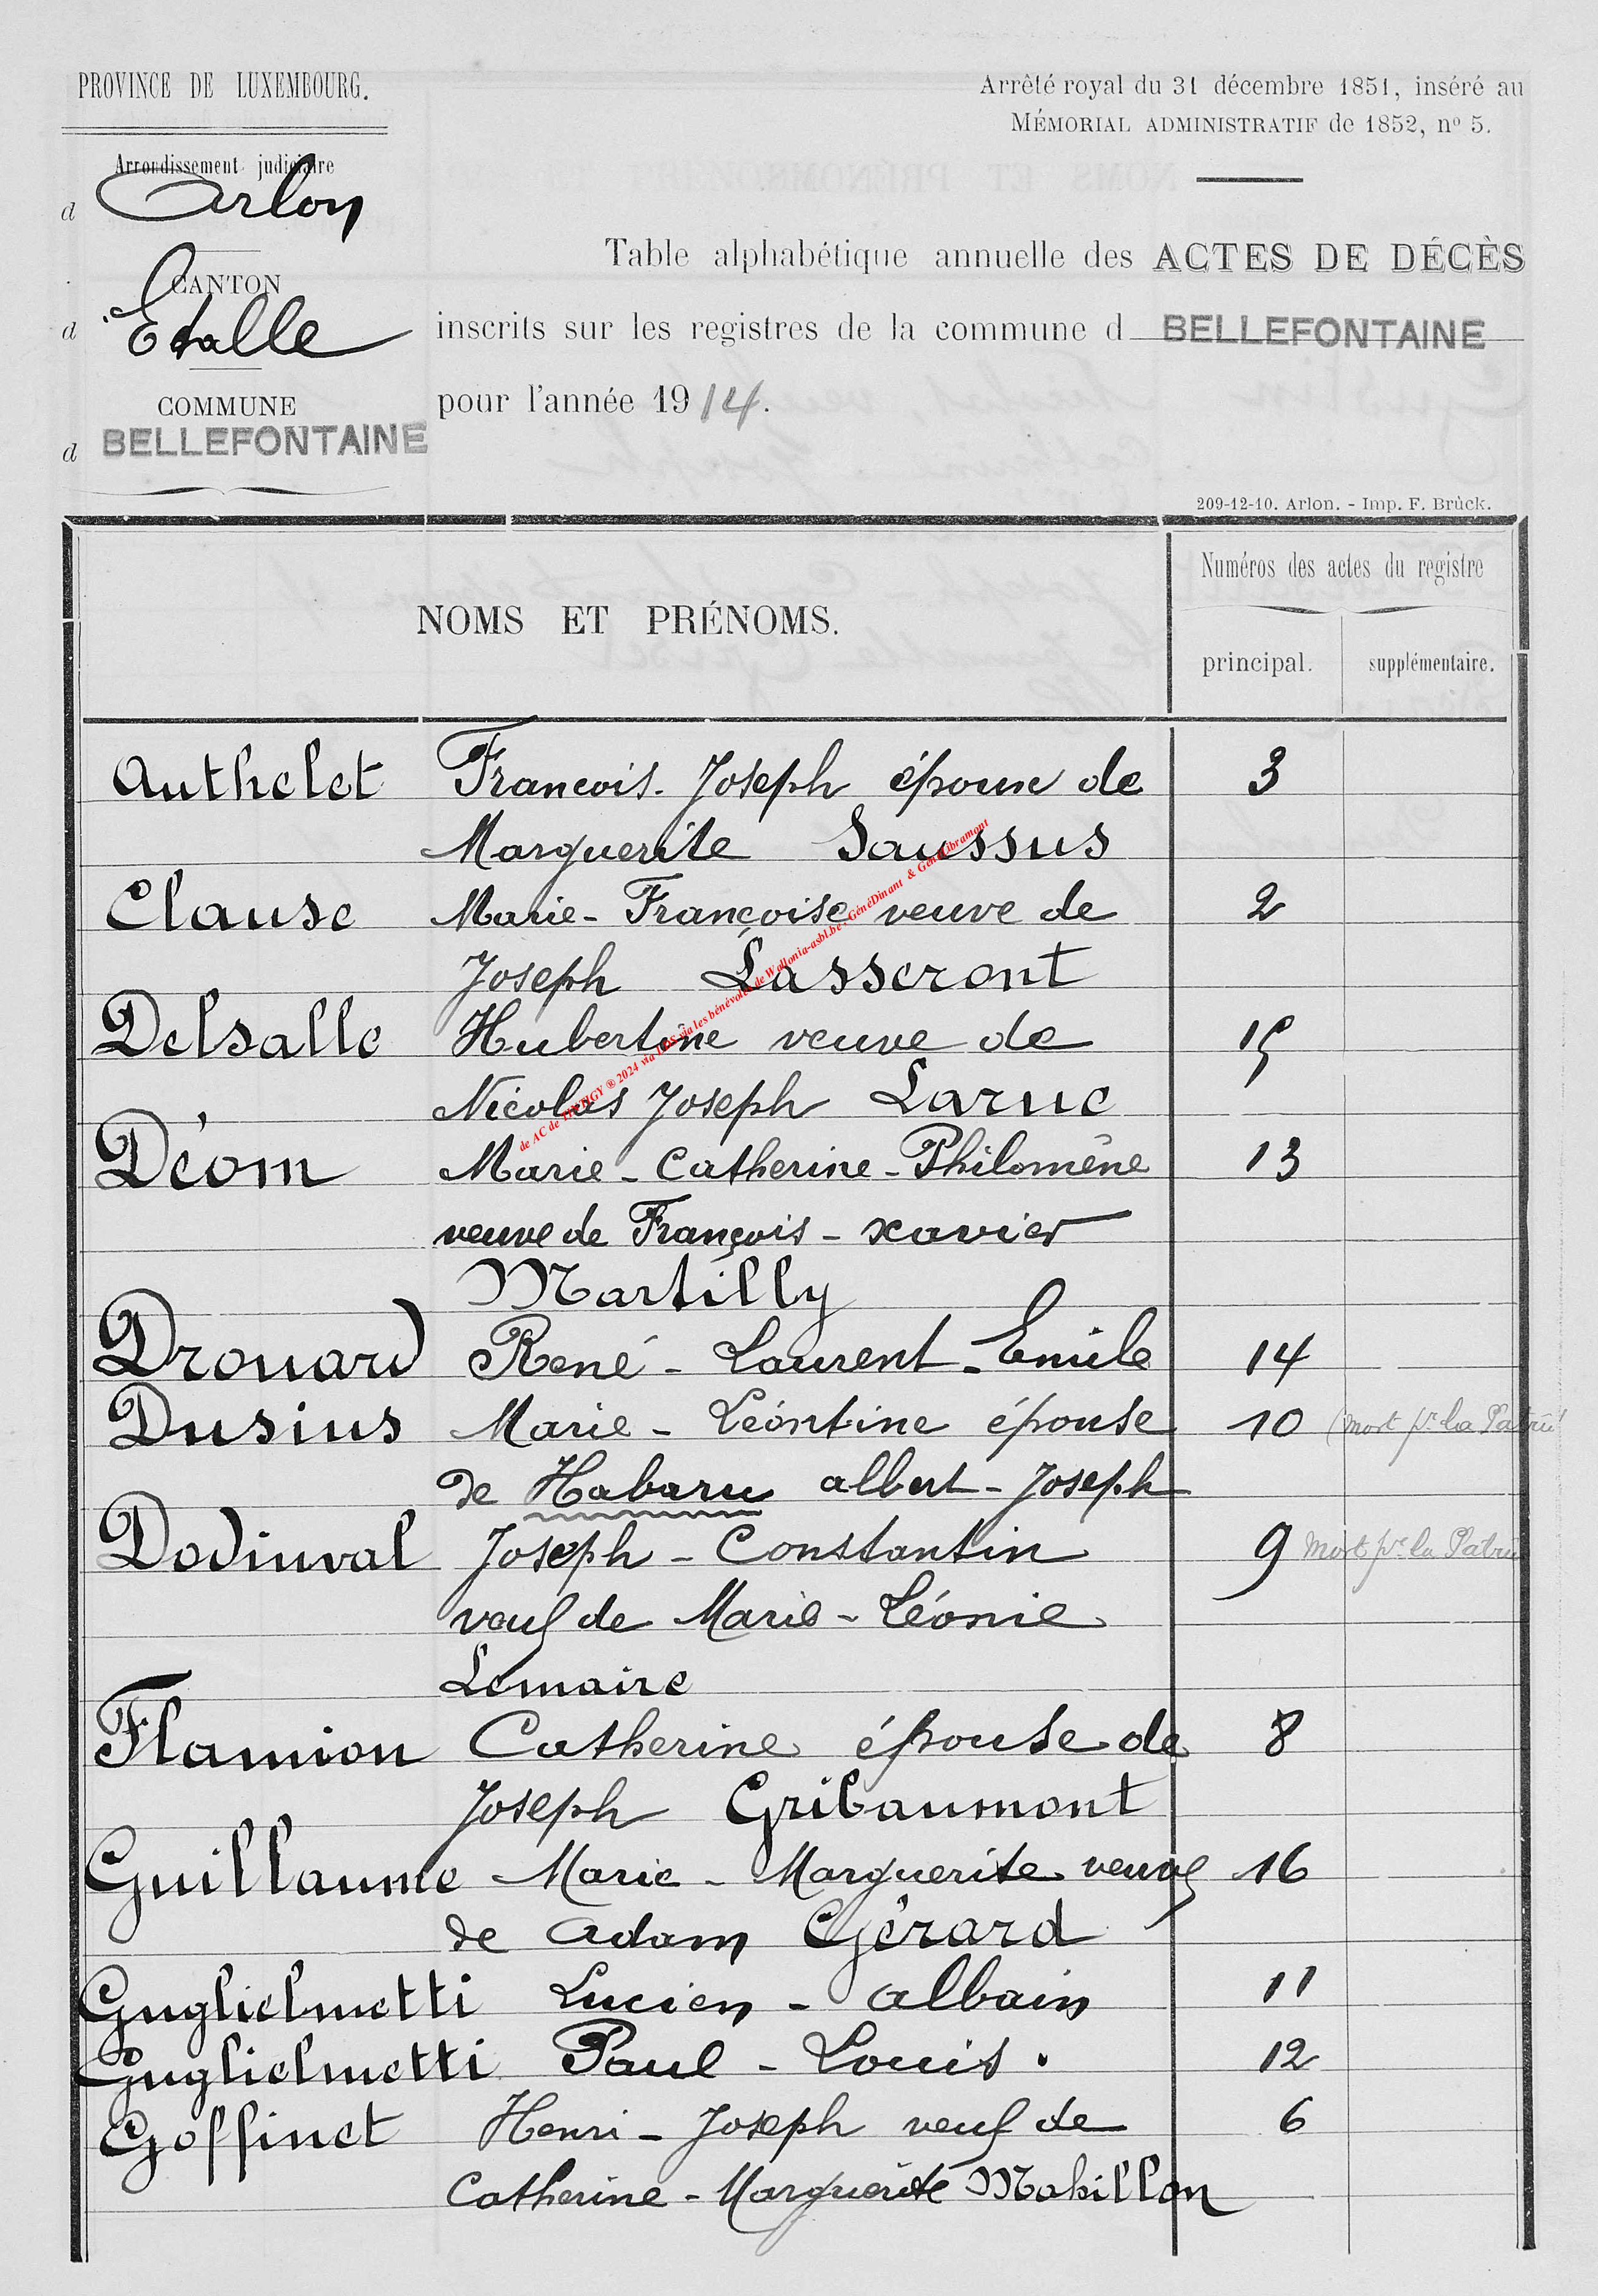 PROVINCE DE LUXEMBOURG.
Arrêté royal du 31 décembre 1851, inséré au
MÉMORIAL ADMINISTRATIF de 1852, nº 5.
Arrondissement judiciaire
d Arlon
CANTON
d Etalle
COMMUNE
d BELLEFONTAINE
Table alphabétique annuelle des ACTES DE DÉCÈS
inscrits sur les registres de la commune d BELLEFONTAINE
pour l'année 1914.
209-12-10. Arlon. - Imp. F. Brück.
NOMS ET PRÉNOMS.
Numéros des actes du registre
principal. supplémentaire.
Authelet Francois-Joseph époux de 3
Marguerite Saussus
Clause Marie-Françoise veuve de 2
Joseph Lasseront
Delsalle Hubertine veuve de 15
Nicolas Joseph Larue
Déom Marie-Catherine-Philomène 13
veuve de François-xavier
Martilly
Drouard René-Laurent-Emile 14
Dusius Marie-Léontine épouse 10 (mort pr la Patrie)
de Habaru albert-Joseph
Dodinval Joseph-Constantin 9 mort pr la Patrie
veuf de Marie-Léonie
Lemaire
Flamion Catherine épouse de 8
Joseph Gribaumont
Guillaume Marie-Marguerite veuve 16
de Adam Gérard
Guglielmetti Lucien-albain 11
Guglielmetti Paul-Louis. 12
Goffinet Henri-Joseph veuf de 6
Catherine-Marguerite Mahillon
de AC de TINTIGY ® 2024 via les bénévoles de Wallonia-asbl.be, GénéDinant & GénéLibramont